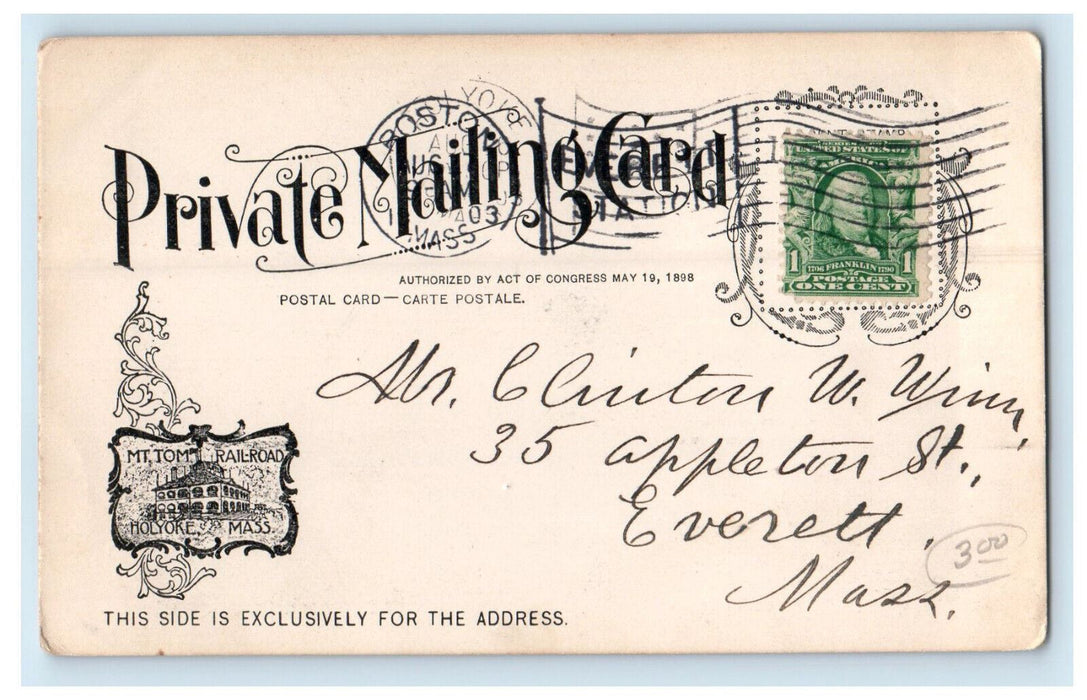 Private Mailing Card
BOSTON
MASS
EVERETT
STATION
AUTHORIZED BY ACT OF CONGRESS MAY 19, 1898
POSTAL CARD — CARTE POSTALE.
SERIES
UNITED STATES OF
1 FRANKLIN 1790 1
POSTAGE
ONE CENT
Mr. Clinton W. Winn,
35 Appleton St.,
Everett,
Mass.
3 00
MT. TOM RAILROAD
HOLYOKE, MASS.
THIS SIDE IS EXCLUSIVELY FOR THE ADDRESS.